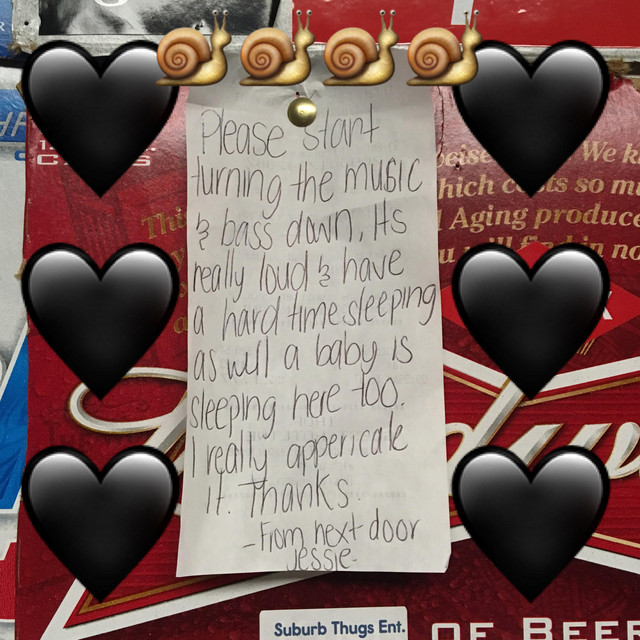 Please start
turning the music
& bass down, Its
really loud & have
a hard time sleeping
as well a baby is
sleeping here too.
I really appericate
it. Thanks
- From next door
Jessie-
We k
hich c sts so m
Aging produce
in no
Suburb Thugs Ent.
OF BEER